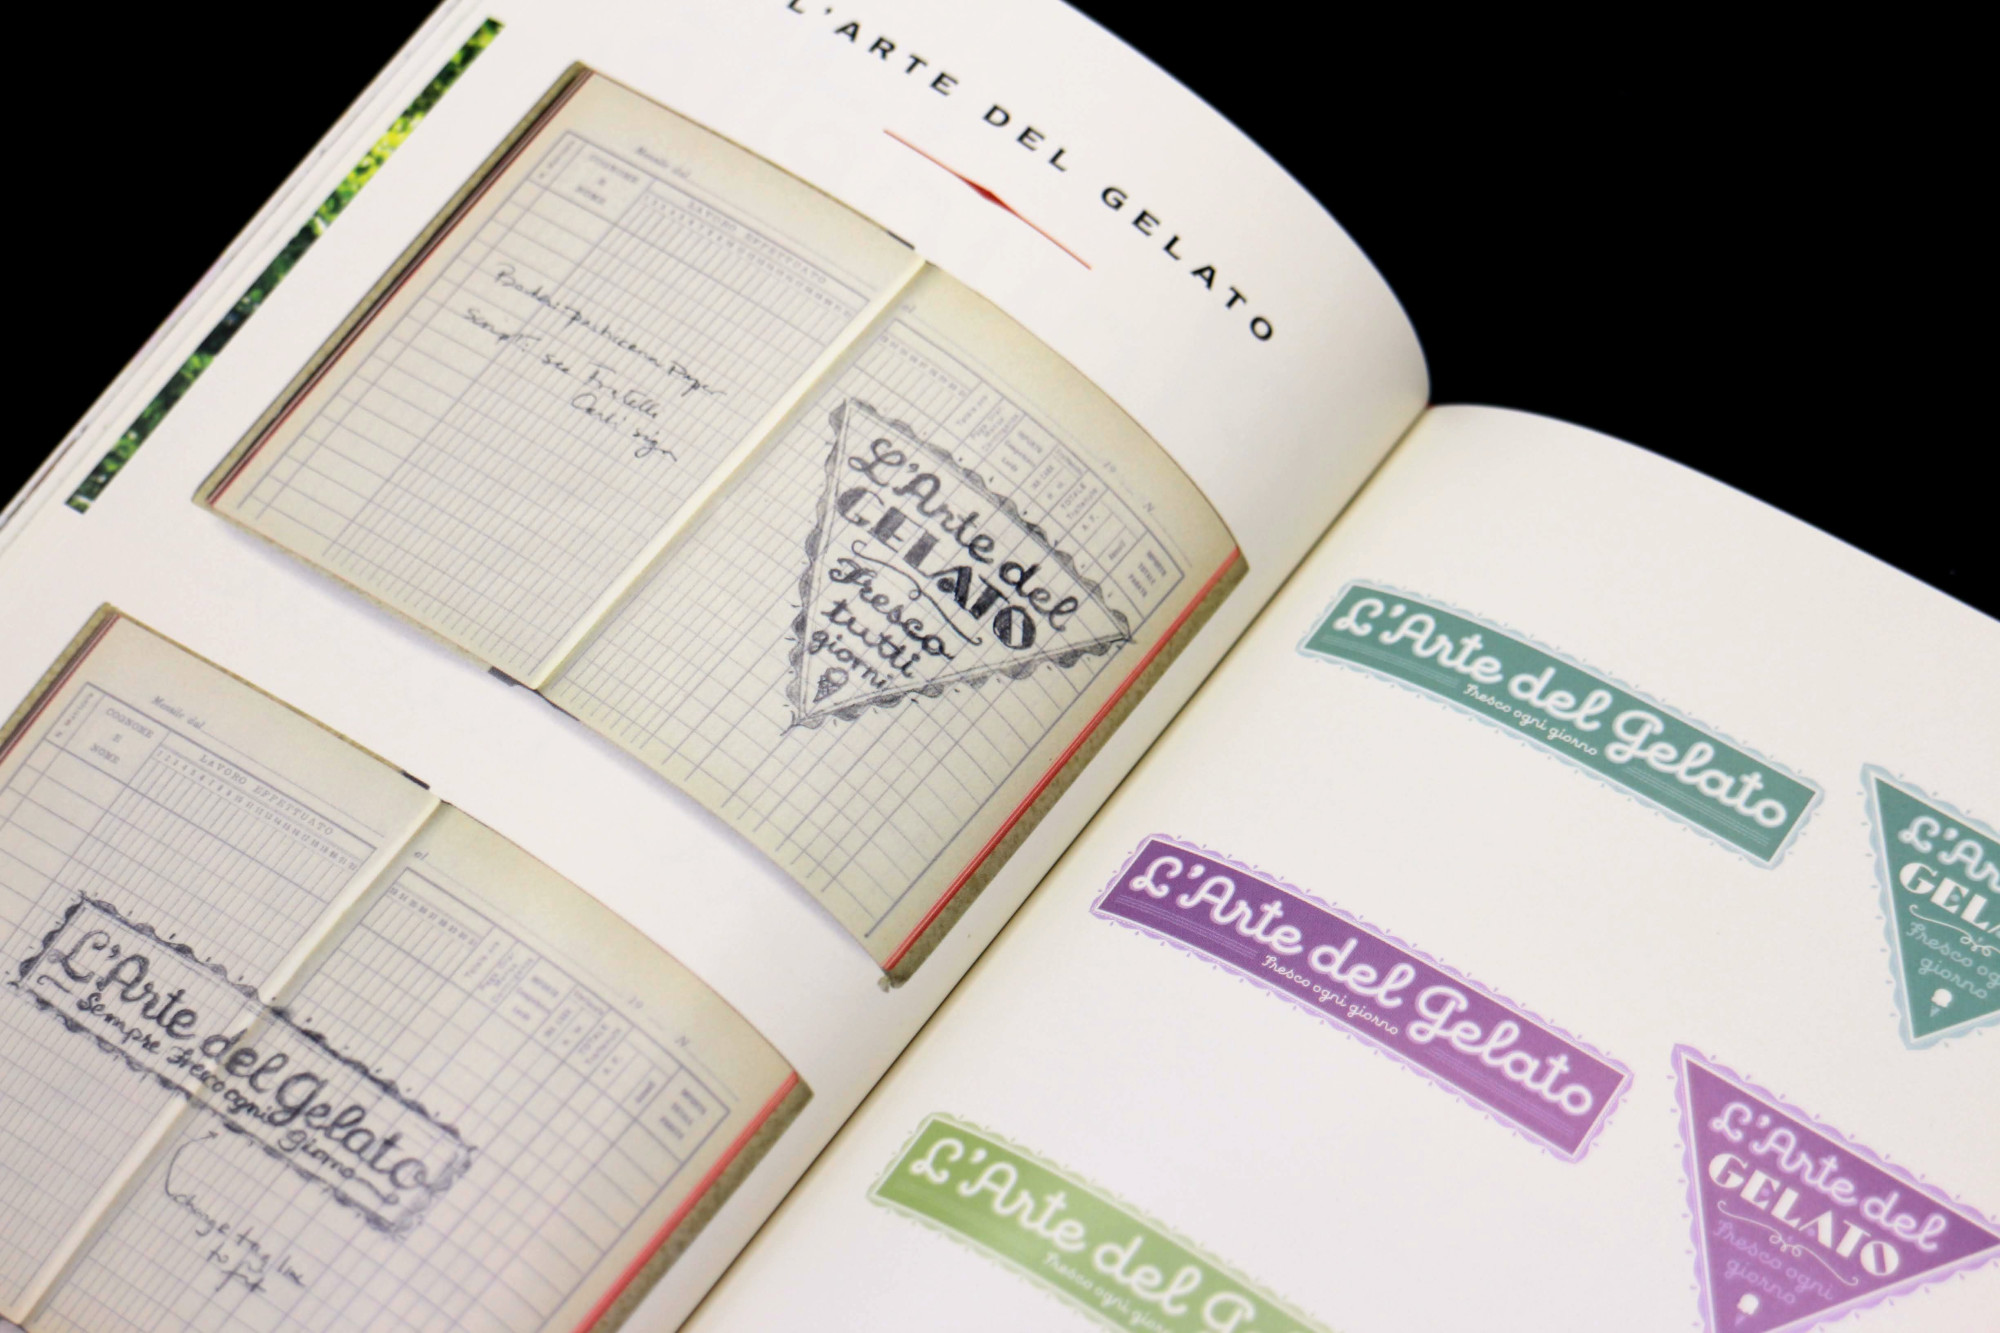 L'ARTE DEL GELATO
Mensile del
COGNOME
E
NOME
LAVORO EFFETTUATO
Paper
script: see Fratelli
Carli sign
L'Arte del
GELATO
Fresco
tutti
giorni
19
N.
IMPORTO
TOTALE
Mensile del
COGNOME
E
NOME
LAVORO EFFETTUATO
L'Arte del Gelato
Sempre Fresco ogni
giorno
change tag line
to fit
19
N.
L'Arte del Gelato
Fresco ogni giorno
L'Ar
GELA
Fresco og
giorno
L'Arte del Gelato
Fresco ogni giorno
L'Arte del
GELATO
Fresco ogni
giorno
L'Arte del G
Fresco ogni giorno